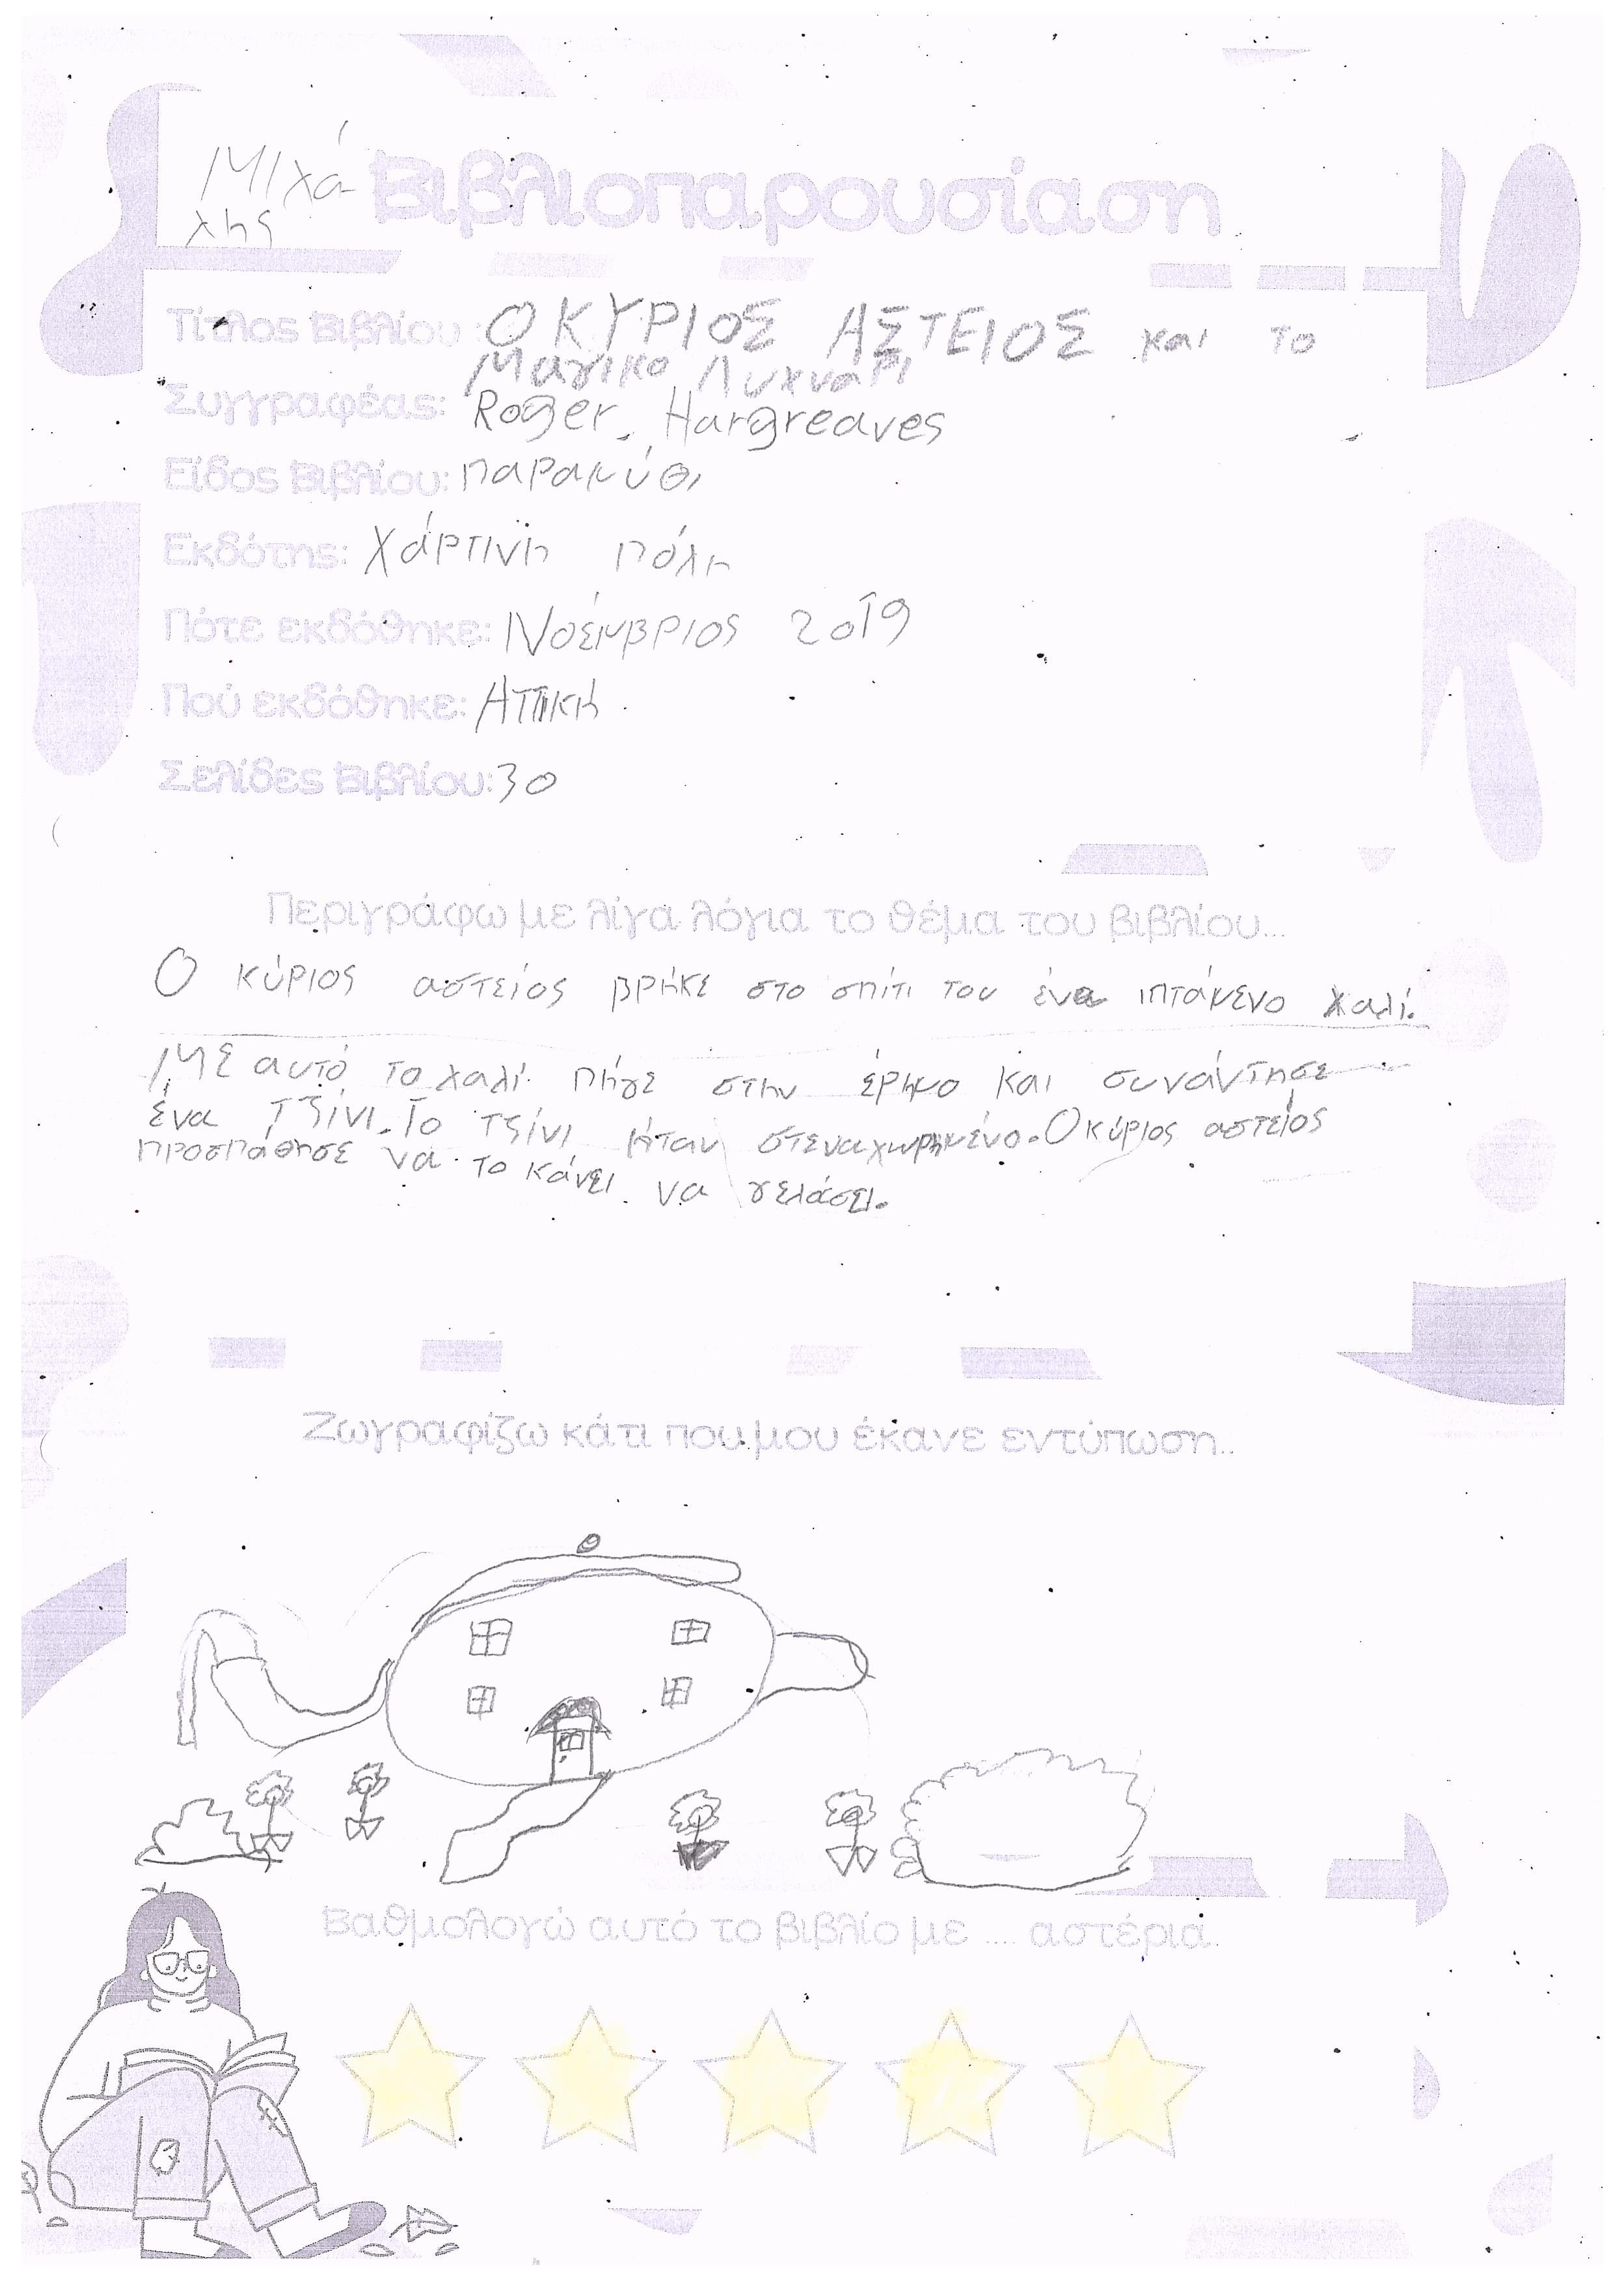 Μιχά
λης
Βιβλιοπαρουσίαση
Τίτλος Βιβλίου: Ο ΚΥΡΙΟΣ ΑΣΤΕΙΟΣ και το
Μαγικο Λυχνάρι
Συγγραφέας: Roger Hargreaves
Είδος Βιβλίου: παραμύθι
Εκδότης: Χάρτινη πόλη
Πότε εκδόθηκε: Νοέμβριος 2019
Πού εκδόθηκε: Αττική
Σελίδες Βιβλίου: 30
Περιγράφω με λίγα λόγια το θέμα του βιβλίου...
Ο κύριος αστείος βρήκε στο σπίτι του ένα ιπτάμενο χαλί.
Με αυτό το χαλί πήγε στην έρημο και συνάντησε
ένα τζίνι. Το τζίνι ήταν στεναχωρημένο. Ο κύριος αστείος
προσπάθησε να το κάνει να γελάσει.
Ζωγραφίζω κάτι που μου έκανε εντύπωση..
Βαθμολογώ αυτό το βιβλίο με .... αστέρια